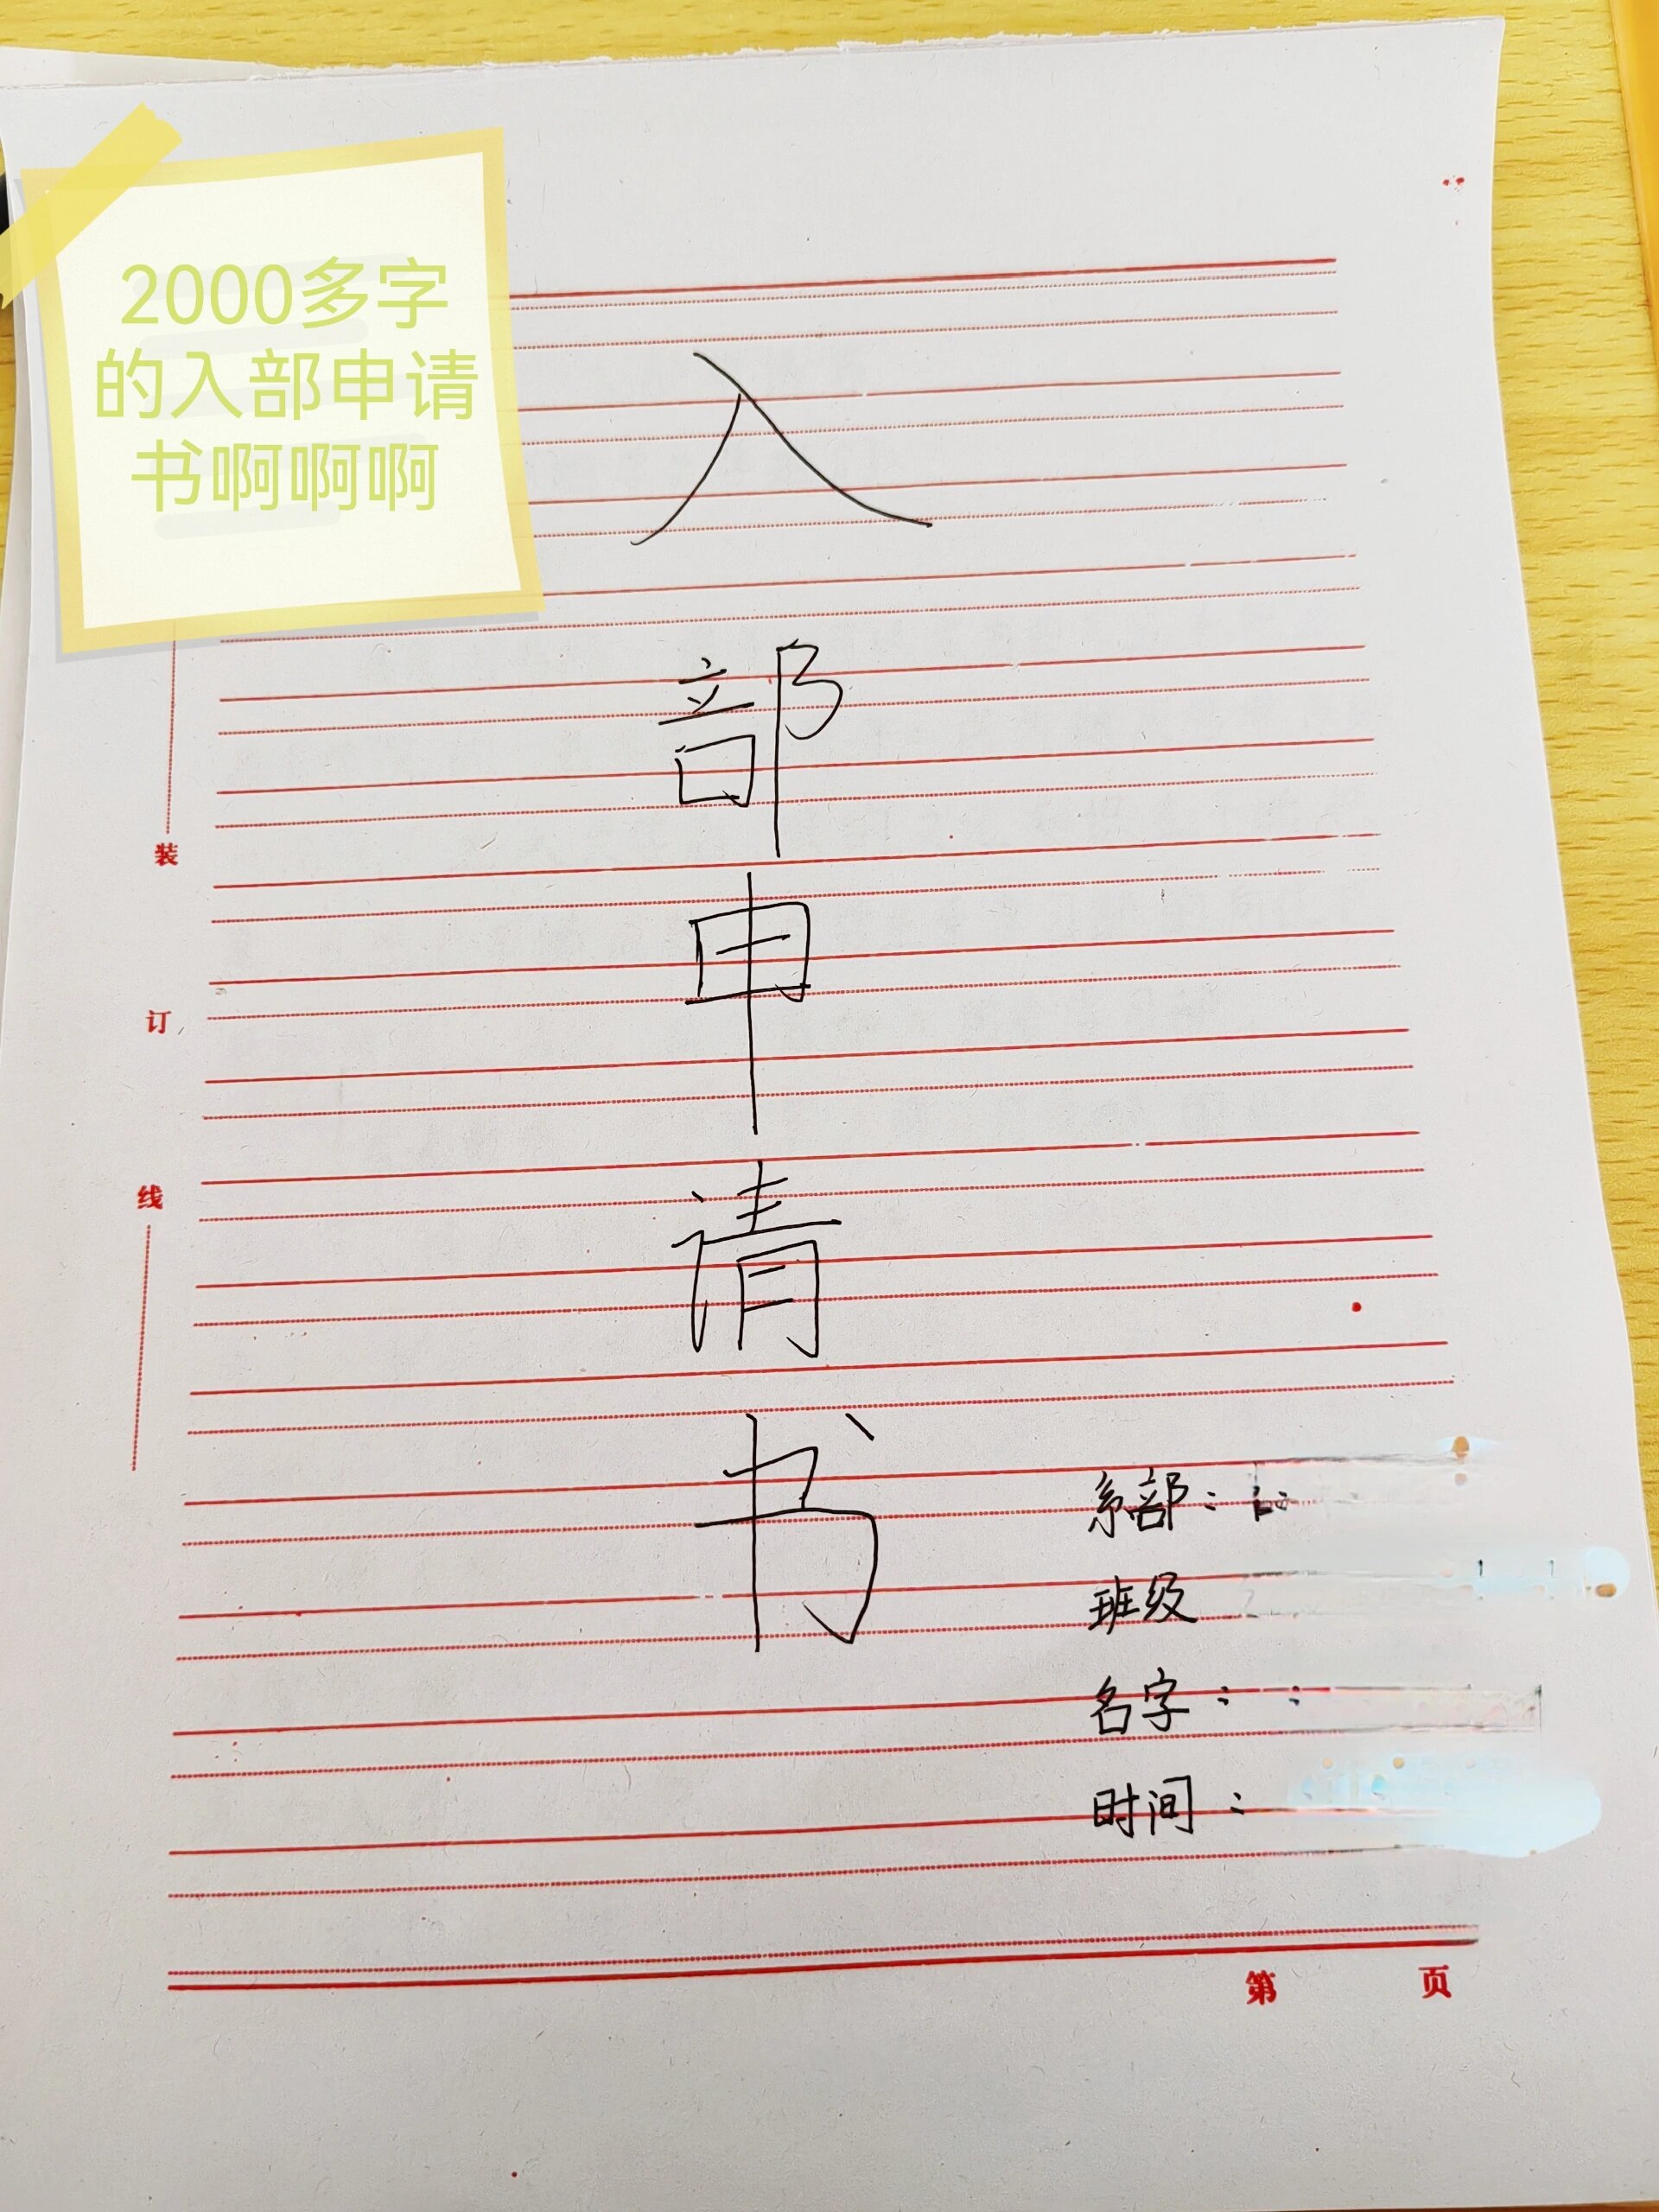 2000多字
的入部申请
书啊啊啊
入
部
申
请
书
装
订
线
系部：
班级
名字：
时间：
第 页